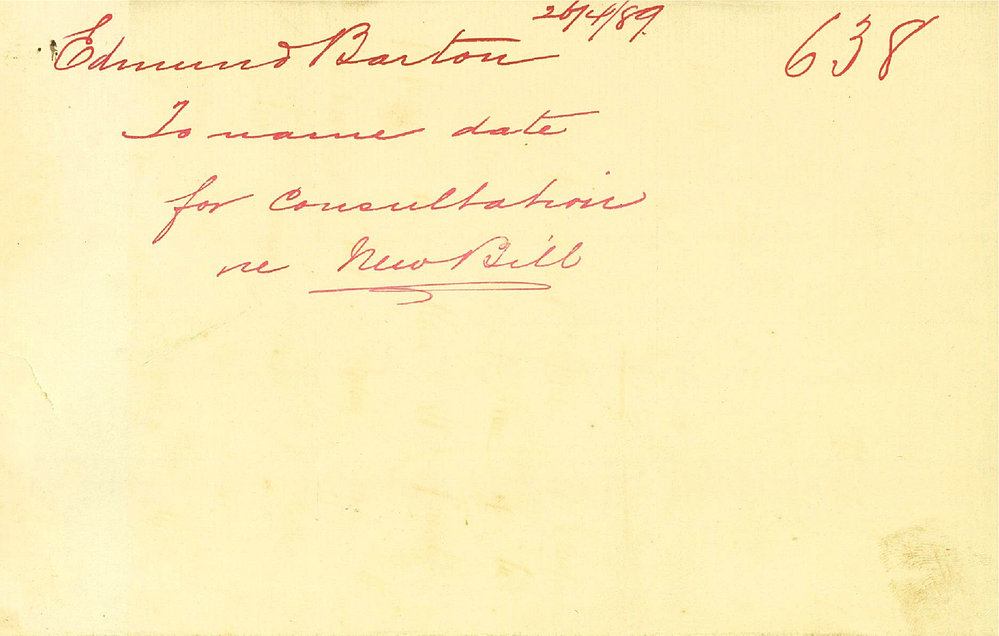 26/4/89.
Edmund Barton 638
To name date
for Consultation
re New Bill